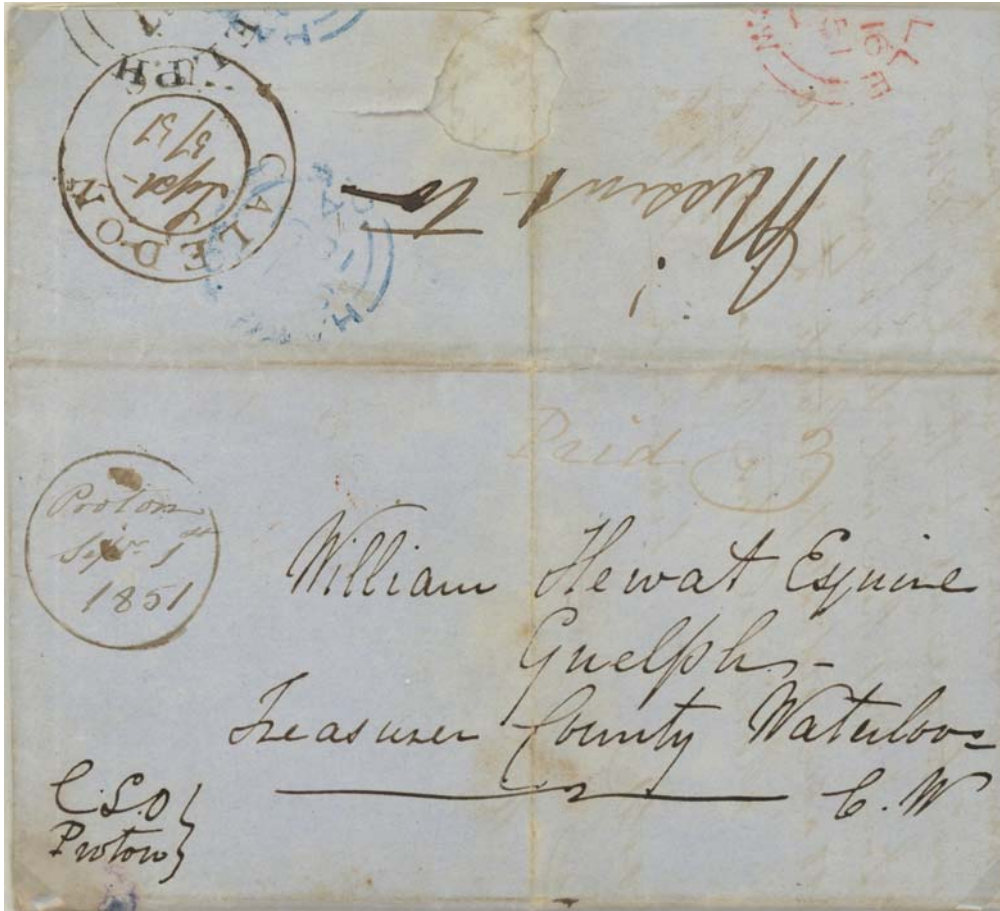 CALEDON
Sept
5/51
Missent to
Paid 3
Proton
Sepr 1st
1851
William Hewat Esquire
Guelph
Treasurer County Waterloo
C. W
C.L.O
Proton